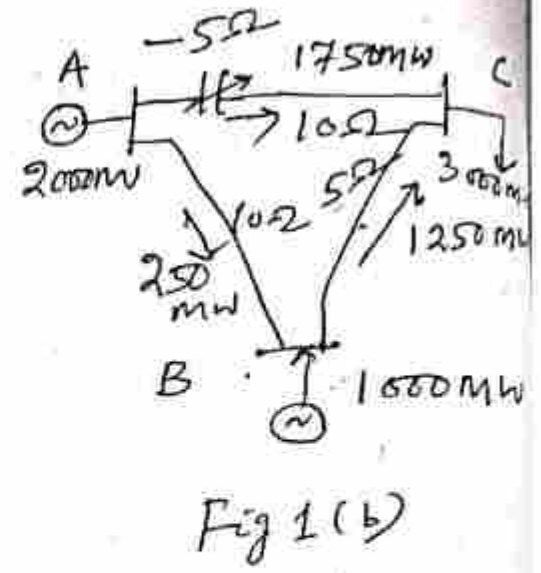 -5Ω
A
1750mw
C
10Ω
2000mw
5Ω
3000m
10Ω
1250mw
250
mw
B
1000MW
Fig 1(b)